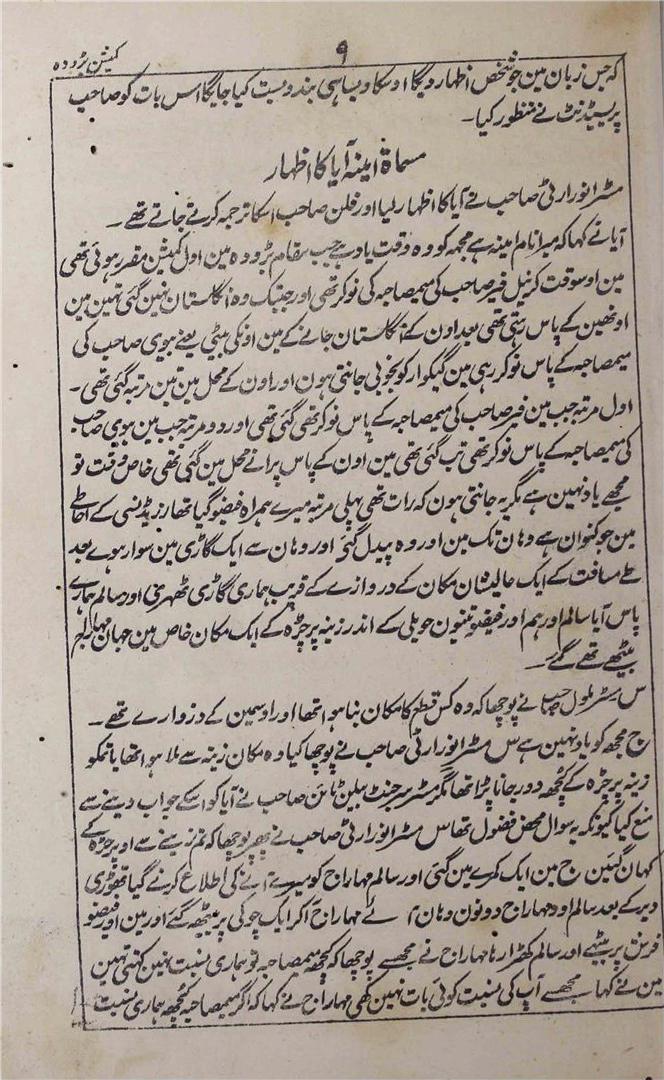 ۹
کمیشن بڑودہ
کہ جس زبان مین جو شخص اظہار دیگا اوسکا ویسا ہی بندوبست کیا جائیگا اس بات کو صاحب
پریسیڈنٹ نے منظور کیا۔
مسماۃ امینہ آیا کا اظہار
مسٹر انورارٹی صاحب نے آیا کا اظہار لیا اور فلن صاحب اسکا ترجمہ کرتے جاتے تھے۔
آیا نے کہا کہ میرا نام امینہ ہے مجھکو وہ وقت یاد ہے جب بمقام بڑودہ مین اول کمیشن مقرر ہوئی تھی
مین اوسوقت کرنیل فیر صاحب کی میمصاحبہ کی نوکر تھی اور جبتک وہ انگلستان نہین گئی تہین مین
اونھین کے پاس رہتی تھی بعد اون کے انگلستان جانے کے مین اونکی بیٹی یعنے بیوی صاحب کی
میمصاحبہ کے پاس نوکر رہی مین گیکوار کو بخوبی جانتی ہون اور اون کے محل مین تین مرتبہ گئی تھی۔
اول مرتبہ جب مین فیر صاحب کی میمصاحبہ کے پاس نوکر تھی گئی تھی اور دو مرتبہ جب مین بیوی صاحب
کی میمصاحبہ کے پاس نوکر تھی تب گئی تھی مین اون کے پاس پرانے محل مین گئی تھی خاص وقت تو
مجھے یاد نہین ہے مگر یہ جانتی ہون کہ رات تھی پہلی مرتبہ میرے ہمراہ فیضو گیا تھا رزیڈنسی کے احاطے
مین جو کنوان ہے وہان تک مین اور وہ پیدل گئے اور وہان سے ایک گاڑی مین سوار ہوے بعد
طے مسافت کے ایک عالیشان مکان کے دروازے کے قریب ہماری گاڑی ٹھہر گئی اور سالم ہمارے
پاس آیا سالم اور ہم اور فیضو تینون حویلی کے اندر زینہ پر چڑہ کے ایک مکان خاص مین جہان مہاراج
بیٹھے تھے گئے۔
س مسٹر ملول صاحب نے پوچھا کہ وہ کس قطع کا مکان بنا ہوا تھا اور اوسمین کے دروازے تھے۔
ج مجھ کو یاد نہین ہے س مسٹر انورارٹی صاحب نے پوچھا کیا وہ مکان زینہ سے ملا ہوا تھا یا تمکو
زینہ پر چڑہ کے کچھ دور جانا پڑا تھا مگر مسٹر سرجنٹ بیلن ٹائن صاحب نے آیا کو اسکے جواب دینے سے
منع کیا کیونکہ یہ سوال محض فضول تھا س مسٹر انورارٹی صاحب نے پھر پوچھا کہ تم زینے سے اوپر چڑہ کے
کہان گئین ج مین ایک کمرے مین گئی اور سالم مہاراج کو میرے آنے کی اطلاع کرنے گیا تھوڑی
دیر کے بعد سالم اور مہاراج دونون وہان آئے مہاراج آکر ایک چوکی پر بیٹھہ گئے اور مین اور فیضو
فرش پر بیٹھے اور سالم کھڑا رہا مہاراج نے مجھسے پوچھا کہ کچھ میمصاحبہ تو ہماری نسبت نہین کہتی تہین
مین نے کہا مجھسے آپ کی نسبت کوئی بات نہین کہی مہاراج نے کہا کہ اگر میمصاحبہ کچھ ہماری نسبت